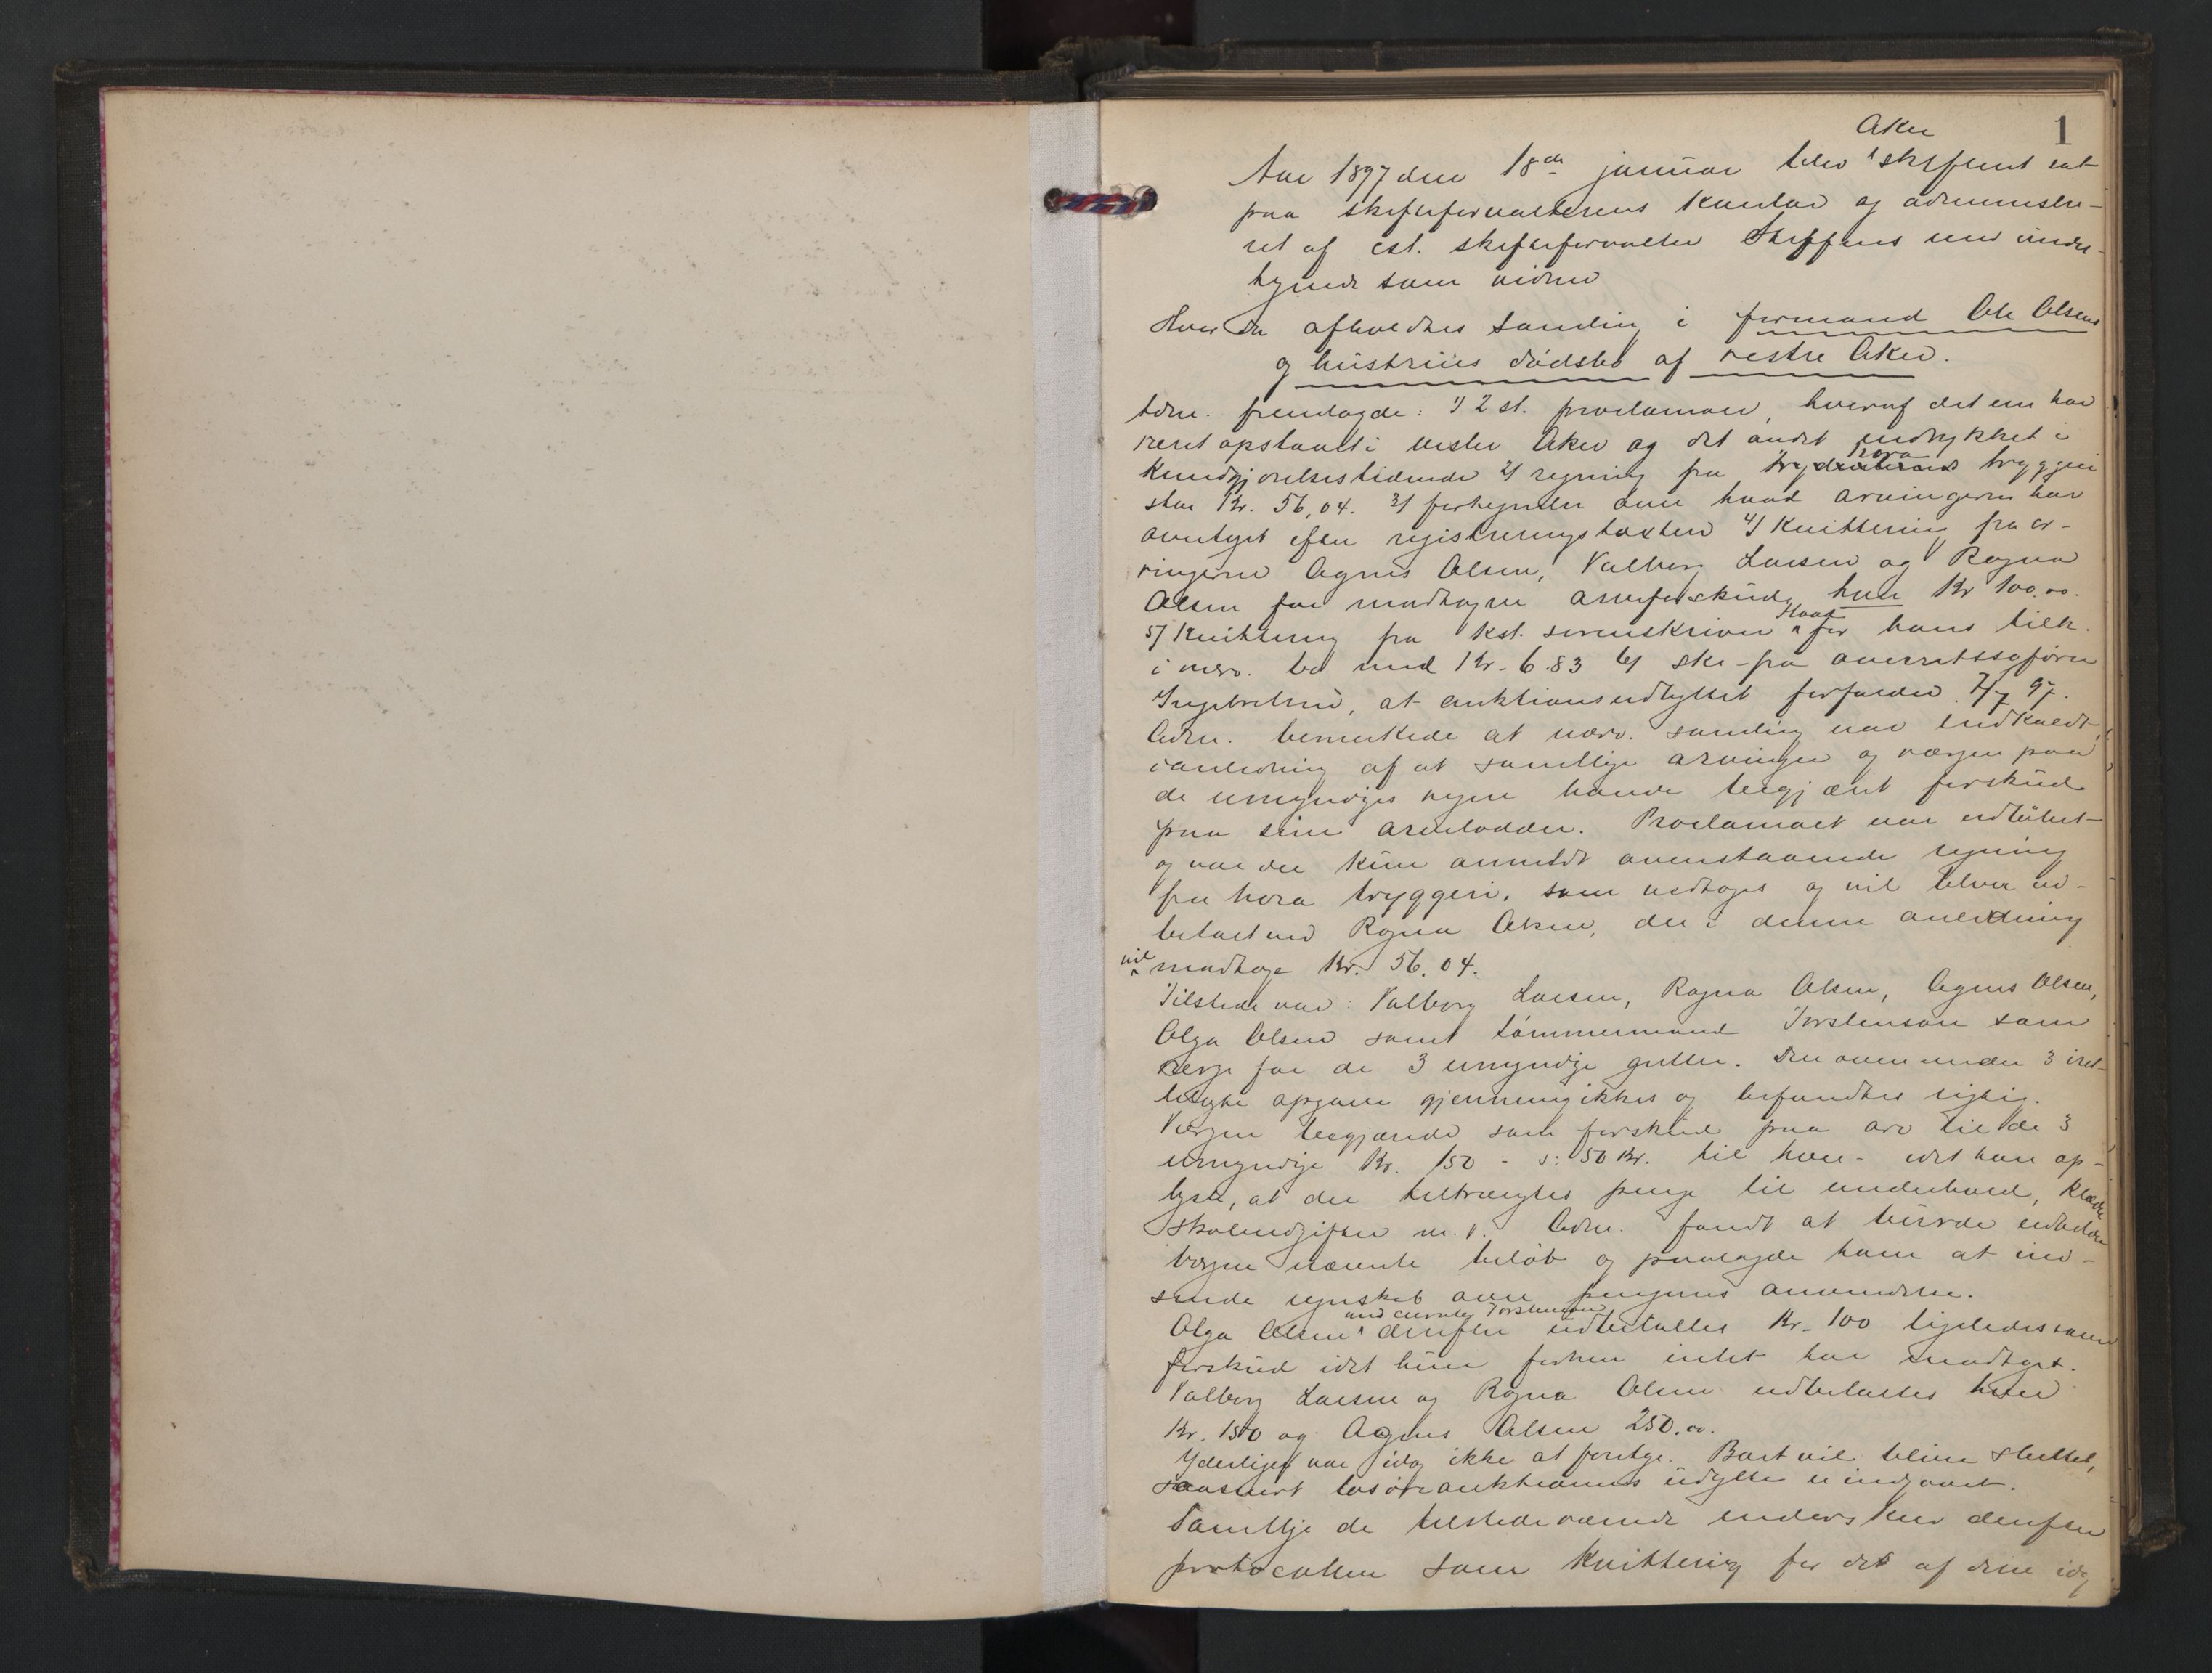 1
Aker
Aar 1897 den 18de januar blev skifteret sat
paa skifteforvalterens kontor og administre-
ret af cst. skifteforvalter Steffens med under-
tegnede som vidne
Hvor da afholdtes samling i formand Ole Olsens
og hustrues dødsbo af vestre Aker.
Adm. fremlagde: 1) 2 st. proclamaer, hvoraf det ene har
været opslaaet i vestre Aker og det andet indrykket i
Kundgjørelsestidende 2) regning fra Nora bryggeri
stor Kr. 56,04. 3) fortegnelse over hvad arvingerne har
overtaget efter registreringstaxten 4) Kvittering fra ar-
vingerne Agnes Olsen, Valborg Larsen og Ragna
Olsen for modtagne arveforskud, hver Kr 100,00.
5) Kvittering fra kst. sorenskriver for hans tilk.
i nærv. bo med Kr. 6.83 6) skr. fra overretssagfører
Ingebretsen, at auktionsudbyttet forfalder 7/7 97.
Adm. bemerkede at nærv. samling var indkaldt
i anledning af at samtlige arvinger og værgen paa
de umyndiges vegne havde begjært forskud
paa sine arvelodder. Proclamaet var udløbet
og var der kun anmeldt ovenstaaende regning
fra Nora bryggeri, som vedtages og vil blive ud-
betalt ved Ragna Olsen, der i denne anledning
vil modtage Kr. 56.04.
Tilstede var: Valborg Larsen, Ragna Olsen, Agnes Olsen,
Olga Olsen samt tømmermand Torstensen som
verge for de 3 umyndige gutter. Den oven under 3 iret-
telagte opgave gjennemgikkes og befandtes rigtig.
Vergen begjærede som forskud paa arv til de 3
umyndige Kr. 150 - ɔ: 50 Kr. til hver - idet han op-
lyste, at der tiltrængtes penge til underhold, klæder
skoleudgifter m.v. Adm. fandt at burde udbetale
vergen nævnte beløb og paalagde ham at ind-
sende regnskab over pengenes anvendelse.
Olga Olsen med curator Torstensen derefter udbetaltes Kr. 100 ligeledes som
forskud idet hun forhen intet har modtaget.
Valborg Larsen og Ragna Olsen udbetaltes hver
Kr. 150 og Agnes Olsen 250.00.
Yderligere var idag ikke at foretage. Boet vil blive sluttet,
saasnart løsøreauktionens udbytte er indgaaet.
Samtlige de tilstedeværende underskrev derefter
protocollen som kvittering for det af dem idag